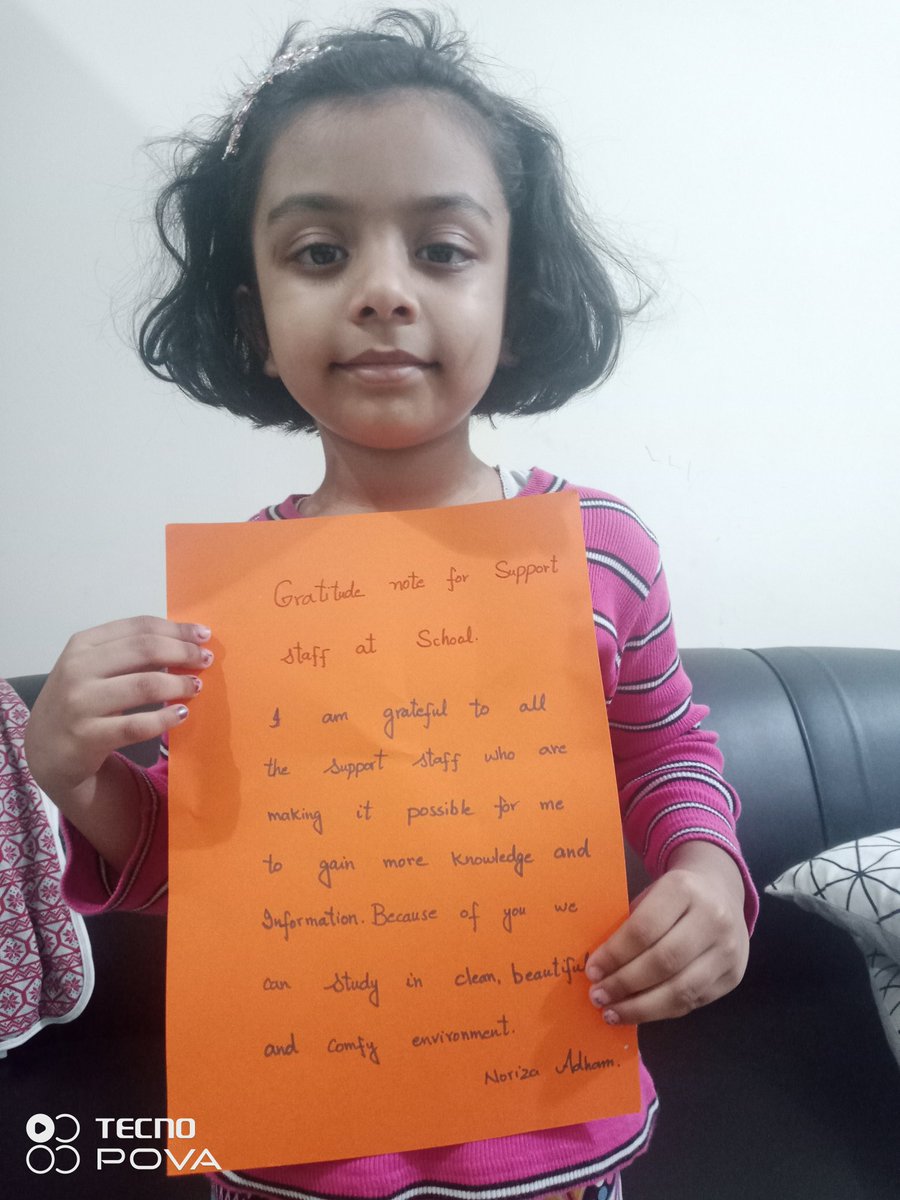 Gratitude note for Support
staff at School.
I am grateful to all
the support staff who are
making it possible for me
to gain more knowledge and
Information. Because of you we
can study in clean, beautiful
and comfy environment.
Noriza Adham.
TECNO
POVA